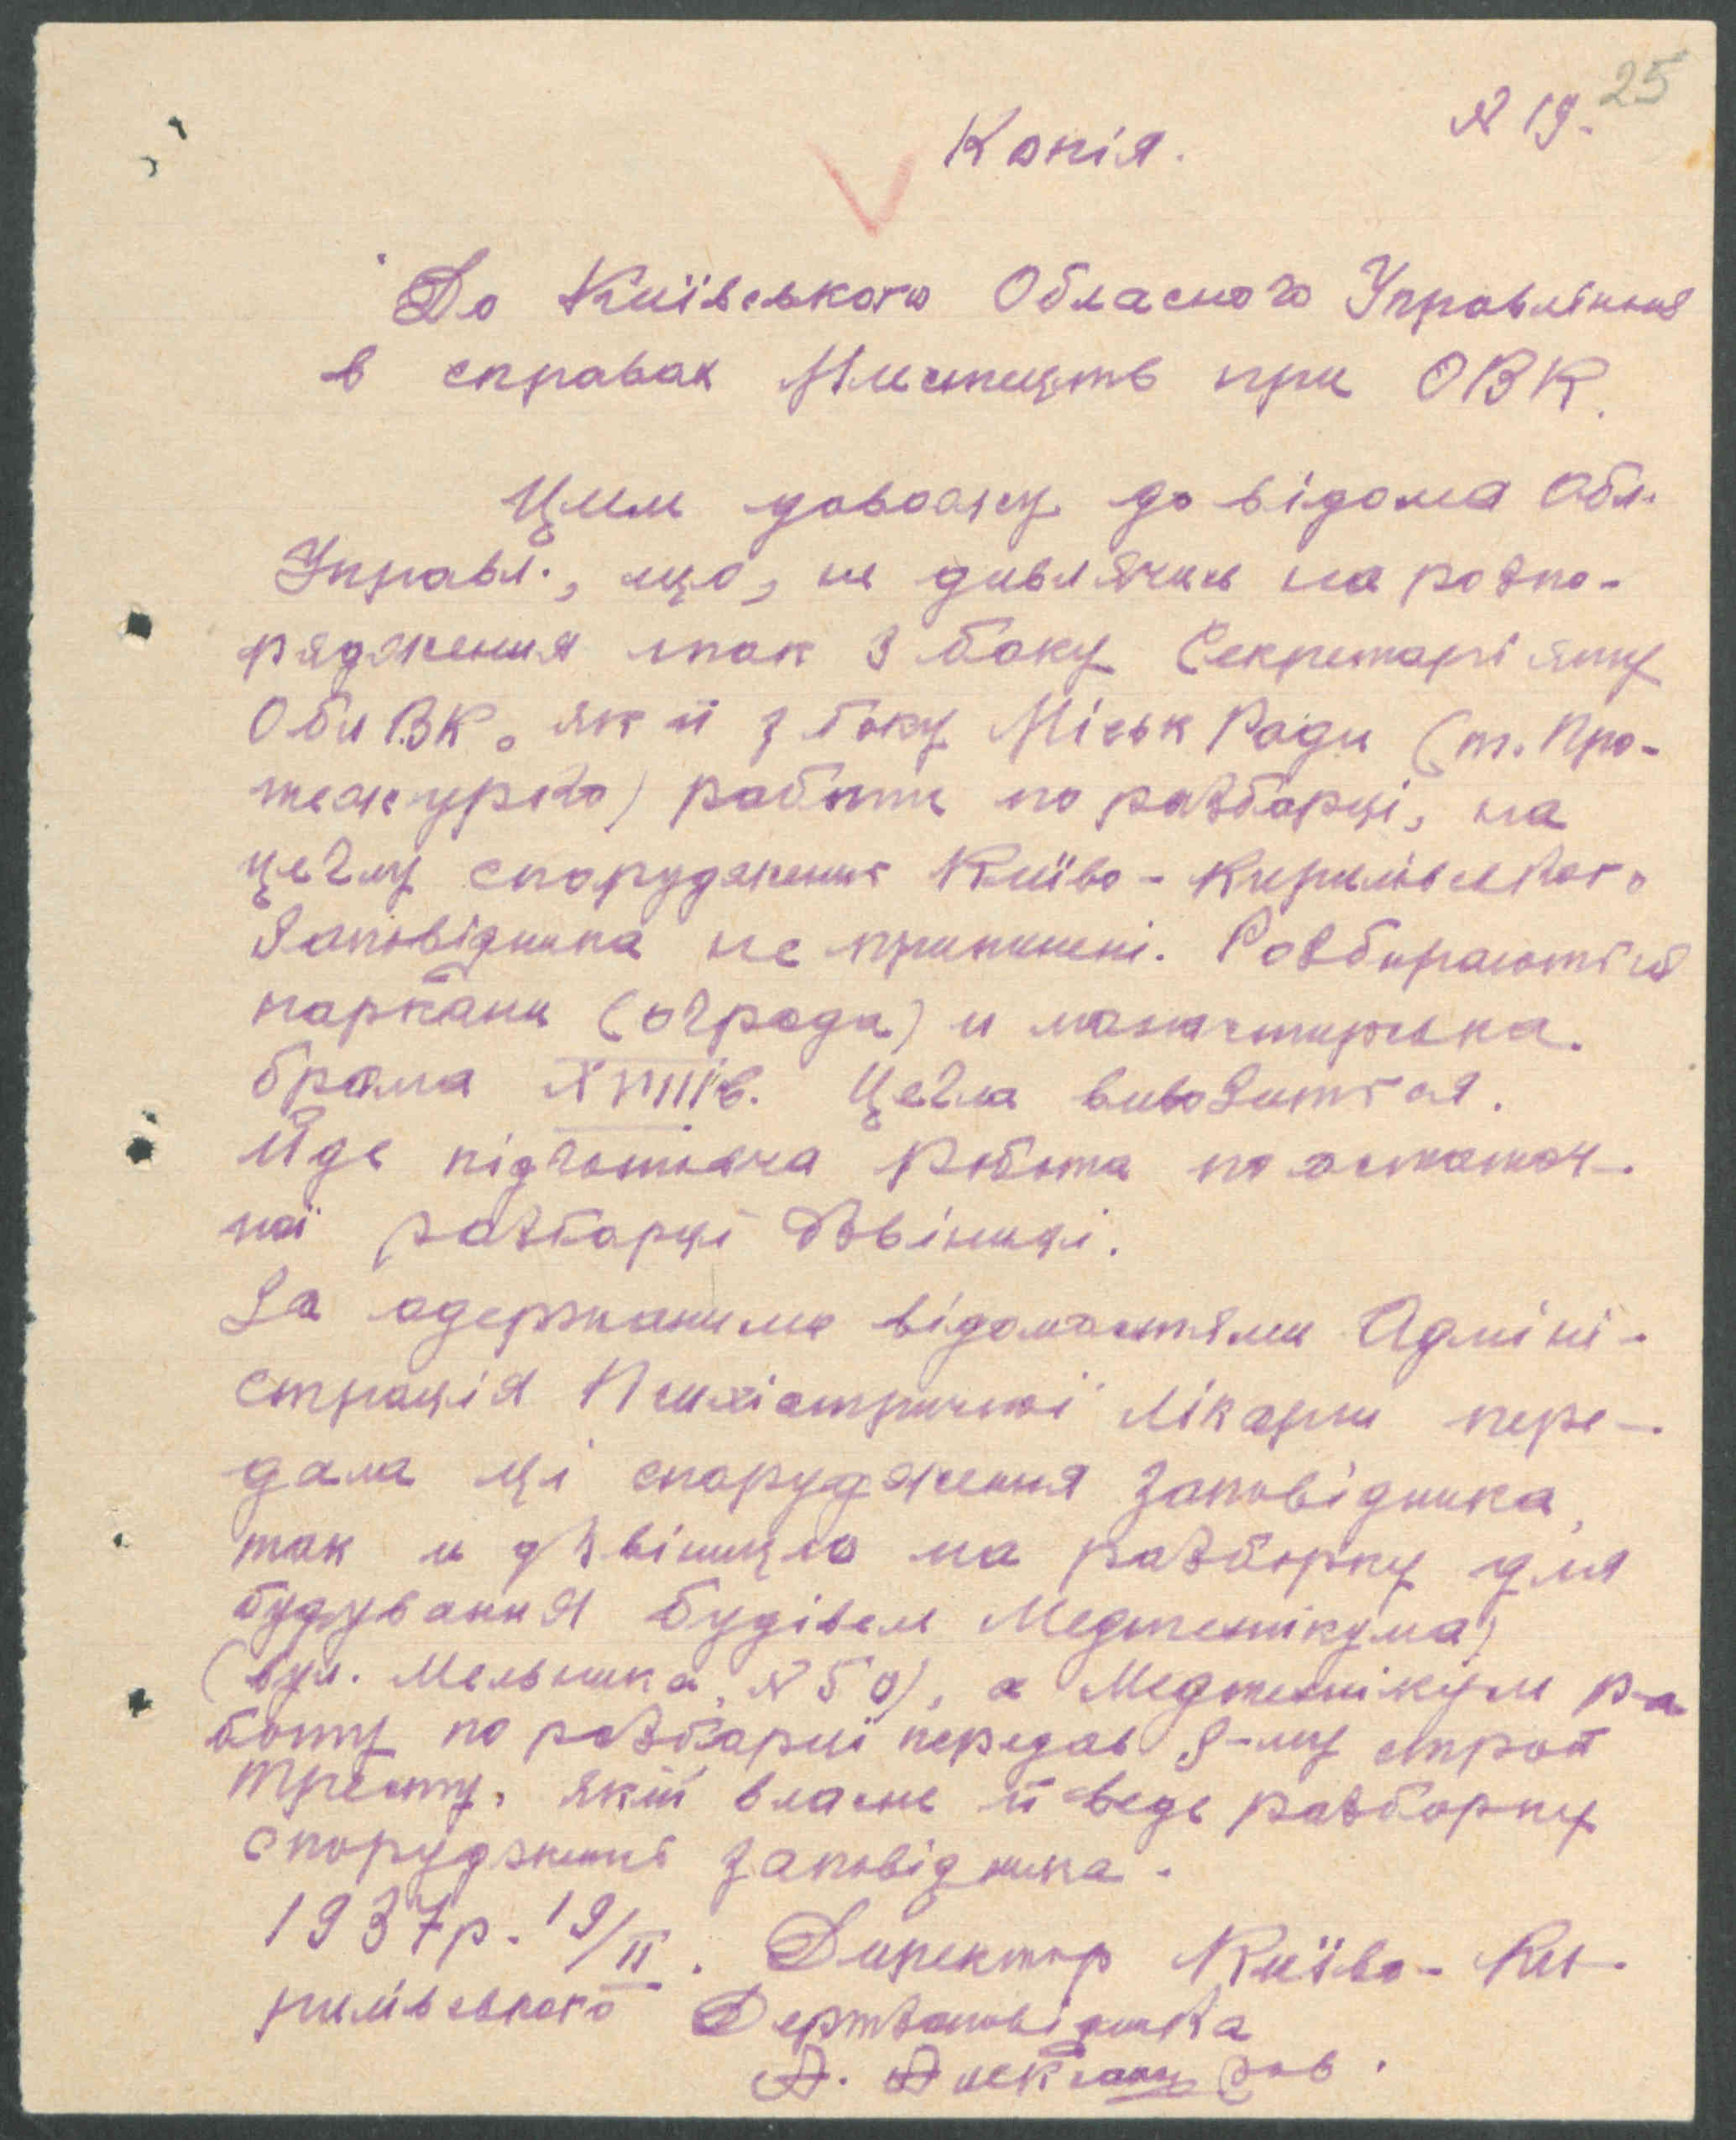 25
№ 19.
Копія.
До Київського Обласного Управління
в справах Мистецтв при ОВК.
Цим довожу до відома Обл.
Управл., що, не дивлячись на розпо-
рядження так з боку Секретаріяту
ОблВК. як й з боку МіськРади (т. Про-
работи по разборці, на
цеглу спорудження Київо-Кирилівського
Заповідника не припинені. Розбираються
паркани (ограда) и монастирська
брама XVIII в. Цегла вивозиться.
Йде підготовча робота по остаточ-
ной разборці дзвіниці.
За одержаними відомостями Адміні-
страція Психіатричної лікарні пере-
дала ці спорудження Заповідника,
так и дзвіницю на разборку для
будування будівель Медтехнікума
(вул. Мельника, № 50), а Медтехнікум ра-
боту по разборці передав 8-му строй
тресту, який власне й веде разборку
спорудження Заповідника.
1937р. 19/II. Директор Київо-Ки-
рилівського Держзаповідника
А. Александров.